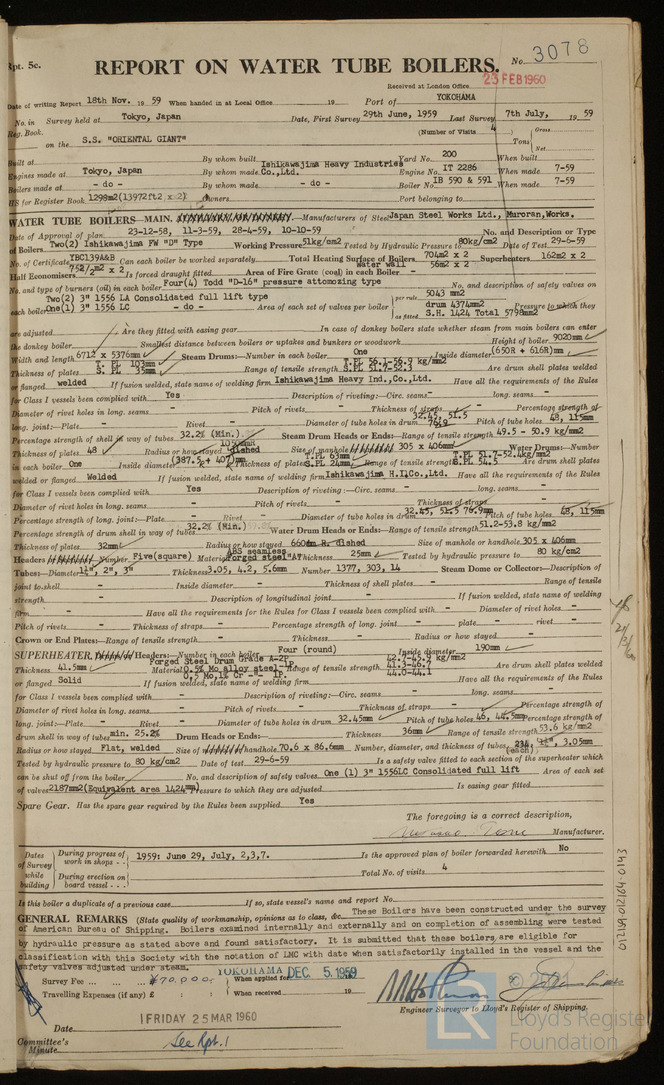 Rpt. 5c.
REPORT ON WATER TUBE BOILERS.
No. 3078
Received at London Office
23 FEB 1960
Date of writing Report 18th Nov. 1959 When handed in at Local Office 19 Port of YOKOHAMA
No. in Survey held at Tokyo, Japan Date, First Survey 29th June, 1959 Last Survey 7th July, 1959
Reg. Book. (Number of Visits 4
on the S.S. "ORIENTAL GIANT" Tons Gross Net
Built at By whom built Ishikawajima Heavy Industries Yard No. 200 When built
Engines made at Tokyo, Japan By whom made Co.,Ltd. Engine No. IT 2286 When made 7-59
Boilers made at - do - By whom made - do - Boiler No. IB 590 & 591 When made 7-59
HS for Register Book 1298m2(13972ft2) x 2) Owners Port belonging to
WATER TUBE BOILERS—MAIN, —Manufacturers of Steel Japan Steel Works Ltd., Muroran,Works.
Date of Approval of plan 23-12-58, 11-3-59, 28-4-59, 10-10-59 No. and Description or Type
of Boilers Two(2) Ishikawajima FW "D" Type Working Pressure 51kg/cm2 Tested by Hydraulic Pressure to 80kg/cm2 Date of Test 29-6-59
No. of Certificate YBC139A&B Can each boiler be worked separately Total Heating Surface of Boilers 704m2 x 2 Superheaters 162m2 x 2
Water wall 56m2 x 2
Half Economisers 752/2m2 x 2 Is forced draught fitted Area of Fire Grate (coal) in each Boiler -
No. and type of burners (oil) in each boiler Four(4) Todd "D-16" pressure atomozing type No. and description of safety valves on
Two(2) 3" 1556 LA Consolidated full lift type per rule 5043 mm2
each boiler One(1) 3" 1556 LC - do - Area of each set of valves per boiler as fitted drum 4374mm2 Pressure to which they
S.H. 1424 Total 5798mm2
are adjusted Are they fitted with easing gear In case of donkey boilers state whether steam from main boilers can enter
the donkey boiler Smallest distance between boilers or uptakes and bunkers or woodwork Height of boiler 9020mm
Width and length 6712 x 5376mm Steam Drums:—Number in each boiler One Inside diameter (650R + 616R)mm
Thickness of plates T.PL 103mm S.PL 35mm Range of tensile strength T.PL 56.1-56.9 kg/mm2 S.PL 51.7-52.3 Are drum shell plates welded
or flanged welded If fusion welded, state name of welding firm Ishikawajima Heavy Ind.,Co.,Ltd. Have all the requirements of the Rules
for Class I vessels been complied with Yes Description of riveting:—Circ. seams - long. seams -
Diameter of rivet holes in long. seams - Pitch of rivets - Thickness of straps - Percentage strength of
long. joint:—Plate - Rivet - Diameter of tube holes in drum 32.45, 51.5 76.9 Pitch of tube holes 48, 115mm
Percentage strength of shell in way of tubes 32.2% (Min.) Steam Drum Heads or Ends:—Range of tensile strength 49.5 - 50.9 kg/mm2
Thickness of plates 48 Radius or how stayed 1050mmR dished Size of manhole 305 x 406mm Water Drums:—Number
in each boiler One Inside diameter (387.5 + 407)mm Thickness of plates T.PL 63mm S.PL 24mm Range of tensile strength T.PL 51.7-52.4kg/mm2 S.PL 54.5 Are drum shell plates
welded or flanged Welded If fusion welded, state name of welding firm Ishikawajima H.I.Co.,Ltd. Have all the requirements of the Rules
for Class I vessels been complied with Yes Description of riveting:—Circ. seams - long. seams -
Diameter of rivet holes in long. seams - Pitch of rivets - Thickness of straps -
Percentage strength of long. joint:—Plate - Rivet - Diameter of tube holes in drum 32.45, 51.5 76.9mm Pitch of tube holes 48, 115mm
Percentage strength of drum shell in way of tubes 32.2% (Min.) Water Drum Heads or Ends:—Range of tensile strength 51.2-53.8 kg/mm2
Thickness of plates 32mm Radius or how stayed 660mm R. dished Size of manhole or handhole 305 x 406mm
Headers Number Five(square) Material ABS seamless Forged steel "A" Thickness 25mm Tested by hydraulic pressure to 80 kg/cm2
Tubes:—Diameter 1¼", 2", 3" Thickness 3.05, 4.2, 5.6mm Number 1377, 303, 14 Steam Dome or Collector:—Description of
joint to shell Inside diameter - Thickness of shell plates - Range of tensile
strength - Description of longitudinal joint - If fusion welded, state name of welding
firm - Have all the requirements for the Rules for Class I vessels been complied with - Diameter of rivet holes -
Pitch of rivets - Thickness of straps - Percentage strength of long. joint - plate - rivet -
Crown or End Plates:—Range of tensile strength - Thickness - Radius or how stayed -
SUPERHEATER, Headers:—Number in each boiler Four (round) Inside diameter 190mm
Thickness 41.5mm Material Forged Steel Drum Grade A-2P 0.5% Mo alloy steel 1P 0.5 Mo,1% Cr -"- 1P. Range of tensile strength 42.7-45.7 kg/mm2 41.3-46.7 44.0-44.1 Are drum shell plates welded
or flanged Solid If fusion welded, state name of welding firm - Have all the requirements of the Rules
for Class I vessels been complied with - Description of riveting:—Circ. seams - long. seams -
Diameter of rivet holes in long. seams - Pitch of rivets - Thickness of straps - Percentage strength of
long. joint:—Plate - Rivet - Diameter of tube holes in drum 32.45mm Pitch of tube holes 46, 44.5mm Percentage strength of
drum shell in way of tubes min. 25.2% Drum Heads or Ends:— Thickness 36mm Range of tensile strength 53.6 kg/mm2
Radius or how stayed Flat, welded Size of handhole 70.6 x 86.6mm Number, diameter, and thickness of tubes 234, 1¼", 3.05mm
(each)
Tested by hydraulic pressure to 80 kg/cm2 Date of test 29-6-59 Is a safety valve fitted to each section of the superheater which
can be shut off from the boiler No. and description of safety valves One (1) 3" 1556LC Consolidated full lift Area of each set
of valves 2187mm2(Equivalent area 1424mm2) Pressure to which they are adjusted Is easing gear fitted
Spare Gear. Has the spare gear required by the Rules been supplied Yes
The foregoing is a correct description,
Manufacturer.
Dates of Survey while building
During progress of work in shops - - 1959: June 29, July, 2,3,7.
During erection on board vessel - - -
Is the approved plan of boiler forwarded herewith No
Total No. of visits 4
Is this boiler a duplicate of a previous case If so, state vessel's name and report No.
GENERAL REMARKS (State quality of workmanship, opinions as to class, &c. These Boilers have been constructed under the survey
of American Bureau of Shipping. Boilers examined internally and externally and on completion of assembling were tested
by hydraulic pressure as stated above and found satisfactory. It is submitted that these boilers are eligible for
classification with this Society with the notation of LMC with date when satisfactorily installed in the vessel and the
safety valves adjusted under steam.
Survey Fee ... ... ¥70,000 When applied for YOKOHAMA DEC 5, 1959
Travelling Expenses (if any) £ : : When received 19
Engineer Surveyor to Lloyd's Register of Shipping.
Date FRIDAY 25 MAR 1960
Committee's
Minute See Rpt. 1
Lloyd's Register
Foundation